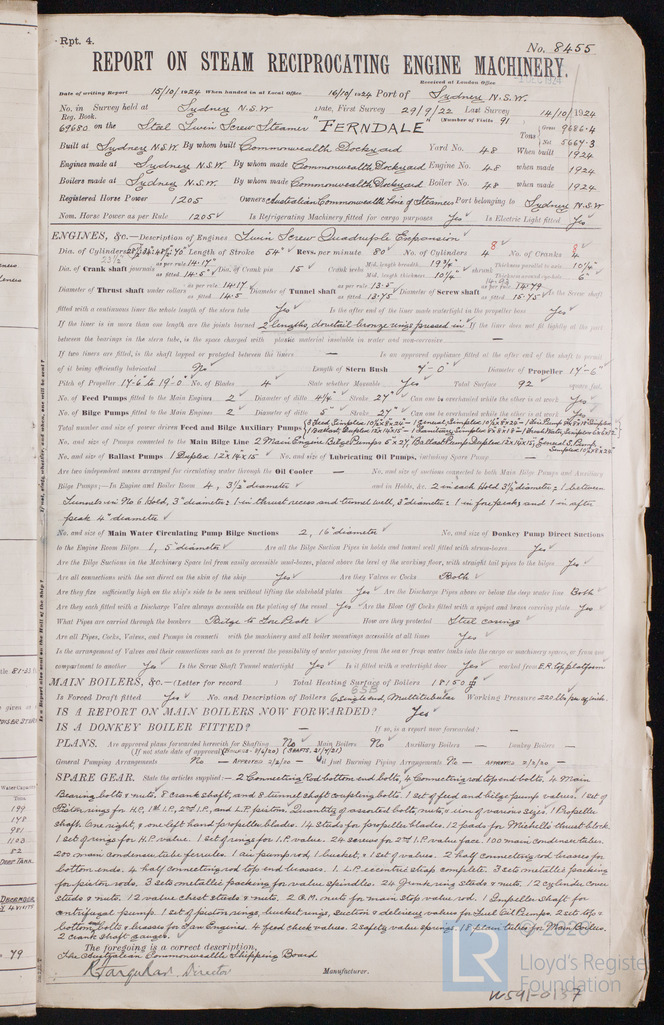 Rpt. 4.
No. 8455
REPORT ON STEAM RECIPROCATING ENGINE MACHINERY.
Received at London Office
Date of writing Report 15/10/1924 When handed in at Local Office 16/10/1924 Port of Sydney N.S.W.
No. in Survey held at Sydney N.S.W Date, First Survey 29/9/22 Last Survey 14/10/1924
Reg. Book. (Number of Visits 91
69680 on the Steel Twin Screw Steamer "FERNDALE" Tons Gross 9686.4
Net 5667.3
Built at Sydney N.S.W. By whom built Commonwealth Dockyard Yard No. 48 When built 1924
Engines made at Sydney N.S.W. By whom made Commonwealth Dockyard Engine No. 48 when made 1924
Boilers made at Sydney N.S.W. By whom made Commonwealth Dockyard Boiler No. 48 when made 1924
Registered Horse Power 1205 Owners Australian Commonwealth Line of Steamers Port belonging to Sydney N.S.W
Nom. Horse Power as per Rule 1205 Is Refrigerating Machinery fitted for cargo purposes Yes Is Electric Light fitted Yes
ENGINES, &c.—Description of Engines Twin Screw Quadruple Expansion
Dia. of Cylinders Length of Stroke 54" Revs. per minute 80 No. of Cylinders 8 No. of Cranks 8
Dia. of Crank shaft journals as per rule 14.17" as fitted 14.5" Dia. of Crank pin 15 Crank webs Mid. length breadth 19¾" Mid. length thickness 10¼" shrunk Thickness parallel to axis 10¼" Thickness around eye-hole 6"
Diameter of Thrust shaft under collars as per rule 14.17 as fitted 14.5 Diameter of Tunnel shaft as per rule 13.5 as fitted 13.75 Diameter of Screw shaft as per rule 14.79 as fitted 15.75 Is the Screw shaft
fitted with a continuous liner the whole length of the stern tube Yes Is the after end of the liner made watertight in the propeller boss Yes
If the liner is in more than one length are the joints burned 2 lengths, dovetail bronze rings pressed in If the liner does not fit tightly at the part
between the bearings in the stern tube, is the space charged with plastic material insoluble in water and non-corrosive —
If two liners are fitted, is the shaft lapped or protected between the liners — Is an approved appliance fitted at the after end of the shaft to permit
of it being efficiently lubricated No Length of Stern Bush 7'-0" Diameter of Propeller 17'-6"
Pitch of Propeller 17-6 to 19-0 No. of Blades 4 State whether Moveable Yes Total Surface 92 square feet.
No. of Feed Pumps fitted to the Main Engines 2 Diameter of ditto 4¼ Stroke 27" Can one be overhauled while the other is at work Yes
No. of Bilge Pumps fitted to the Main Engines 2 Diameter of ditto 5" Stroke 27" Can one be overhauled while the other is at work Yes
Total number and size of power driven Feed and Bilge Auxiliary Pumps
No. and size of Pumps connected to the Main Bilge Line 2 Main Engine Bilge Pumps 5"x27" Ballast Pump Duplex 12x14x15, General S. Pump Simplex 10½x8x26"
No. and size of Ballast Pumps 1 Duplex 12x14x15 No. and size of Lubricating Oil Pumps, including Spare Pump —
Are two independent means arranged for circulating water through the Oil Cooler — No. and size of suctions connected to both Main Bilge Pumps and Auxiliary
Bilge Pumps:—In Engine and Boiler Room 4, 3½" diameter and in Holds, &c. 2 in each Hold 3½" diameter: 1 between
Tunnels in No 6 Hold, 3" diameter: 1 in thrust recess and tunnel well, 3" diameter: 1 in fore peak; and 1 in after
peak 4" diameter
No. and size of Main Water Circulating Pump Bilge Suctions 2, 16" diameter No. and size of Donkey Pump Direct Suctions
to the Engine Room Bilges 1, 5" diameter Are all the Bilge Suction Pipes in holds and tunnel well fitted with strum-boxes Yes
Are the Bilge Suctions in the Machinery Space led from easily accessible mud-boxes, placed above the level of the working floor, with straight tail pipes to the bilges Yes
Are all connections with the sea direct on the skin of the ship Yes Are they Valves or Cocks Both
Are they fixed sufficiently high on the ship's side to be seen without lifting the stokehold plates Yes Are the Discharge Pipes above or below the deep water line Both
Are they each fitted with a Discharge Valve always accessible on the plating of the vessel Yes Are the Blow Off Cocks fitted with a spigot and brass covering plate Yes
What Pipes are carried through the bunkers Bilge to Fore Peak How are they protected Steel casings
Are all Pipes, Cocks, Valves, and Pumps in connection with the machinery and all boiler mountings accessible at all times Yes
Is the arrangement of Valves and their connections such as to prevent the possibility of water passing from the sea or from water tanks into the cargo or machinery spaces, or from one
compartment to another Yes Is the Screw Shaft Tunnel watertight Yes Is it fitted with a watertight door Yes worked from E.R. top platform
MAIN BOILERS, &c.—(Letter for record ) Total Heating Surface of Boilers 18150
6 S.B
Is Forced Draft fitted Yes No. and Description of Boilers 6 Single end, Multitubular Working Pressure 220 lbs per sq. inch.
IS A REPORT ON MAIN BOILERS NOW FORWARDED? Yes
IS A DONKEY BOILER FITTED? — If so, is a report now forwarded? —
PLANS. Are approved plans forwarded herewith for Shafting No Main Boilers No Auxiliary Boilers — Donkey Boilers —
(If not state date of approval)
General Pumping Arrangements No — APPROVED 2/2/20 — Oil fuel Burning Piping Arrangements No — APPROVED 2/2/20 —
SPARE GEAR. State the articles supplied:— 2 Connecting Rod bottom end bolts, 4 Connecting rod top end bolts, 4 Main
Bearing bolts & nuts, 8 crank shaft, and 8 tunnel shaft coupling bolts. 1 set of feed and bilge pump valves. 1 set of
Piston rings for H.P., 1st I.P., 2nd I.P., and L.P. pistons. Quantity of assorted bolts, nuts, & iron of various sizes. 1 Propeller
shaft. One right, & one left hand propeller blades. 14 studs for propeller blades. 12 pads for Michell thrust block.
1 set of rings for H.P. valve. 1 set of rings for I.P. valve. 24 screws for 2nd I.P. valve face. 100 main condenser tubes.
200 main condenser tube ferrules. 1 air pump rod, 1 bucket, & 1 set of valves. 2 half connecting rod brasses for
bottom ends. 4 half connecting rod top end brasses. 1 L.P. eccentric strap complete. 3 sets metallic packing
for piston rods. 3 sets metallic packing for valve spindles. 24 Junk ring studs & nuts. 12 cylinder cover
studs & nuts. 12 valve chest studs & nuts. 2 G.M. nuts for main stop valve rod. 1 Impeller shaft for
centrifugal pump. 1 set of piston rings, bucket rings, suction & delivery valves for Fuel Oil Pumps. 2 set top &
bottom bolts & brasses for Fan Engines. 4 feed check valves. 2 safety valve springs. 18 plain tubes for Main Boilers.
2 crank shaft gauges.
The foregoing is a correct description,
The Australian Commonwealth Shipping Board
R Farquhar Director
Manufacturer.
© 2020
LR
Lloyd's Register
Foundation
W591-0137